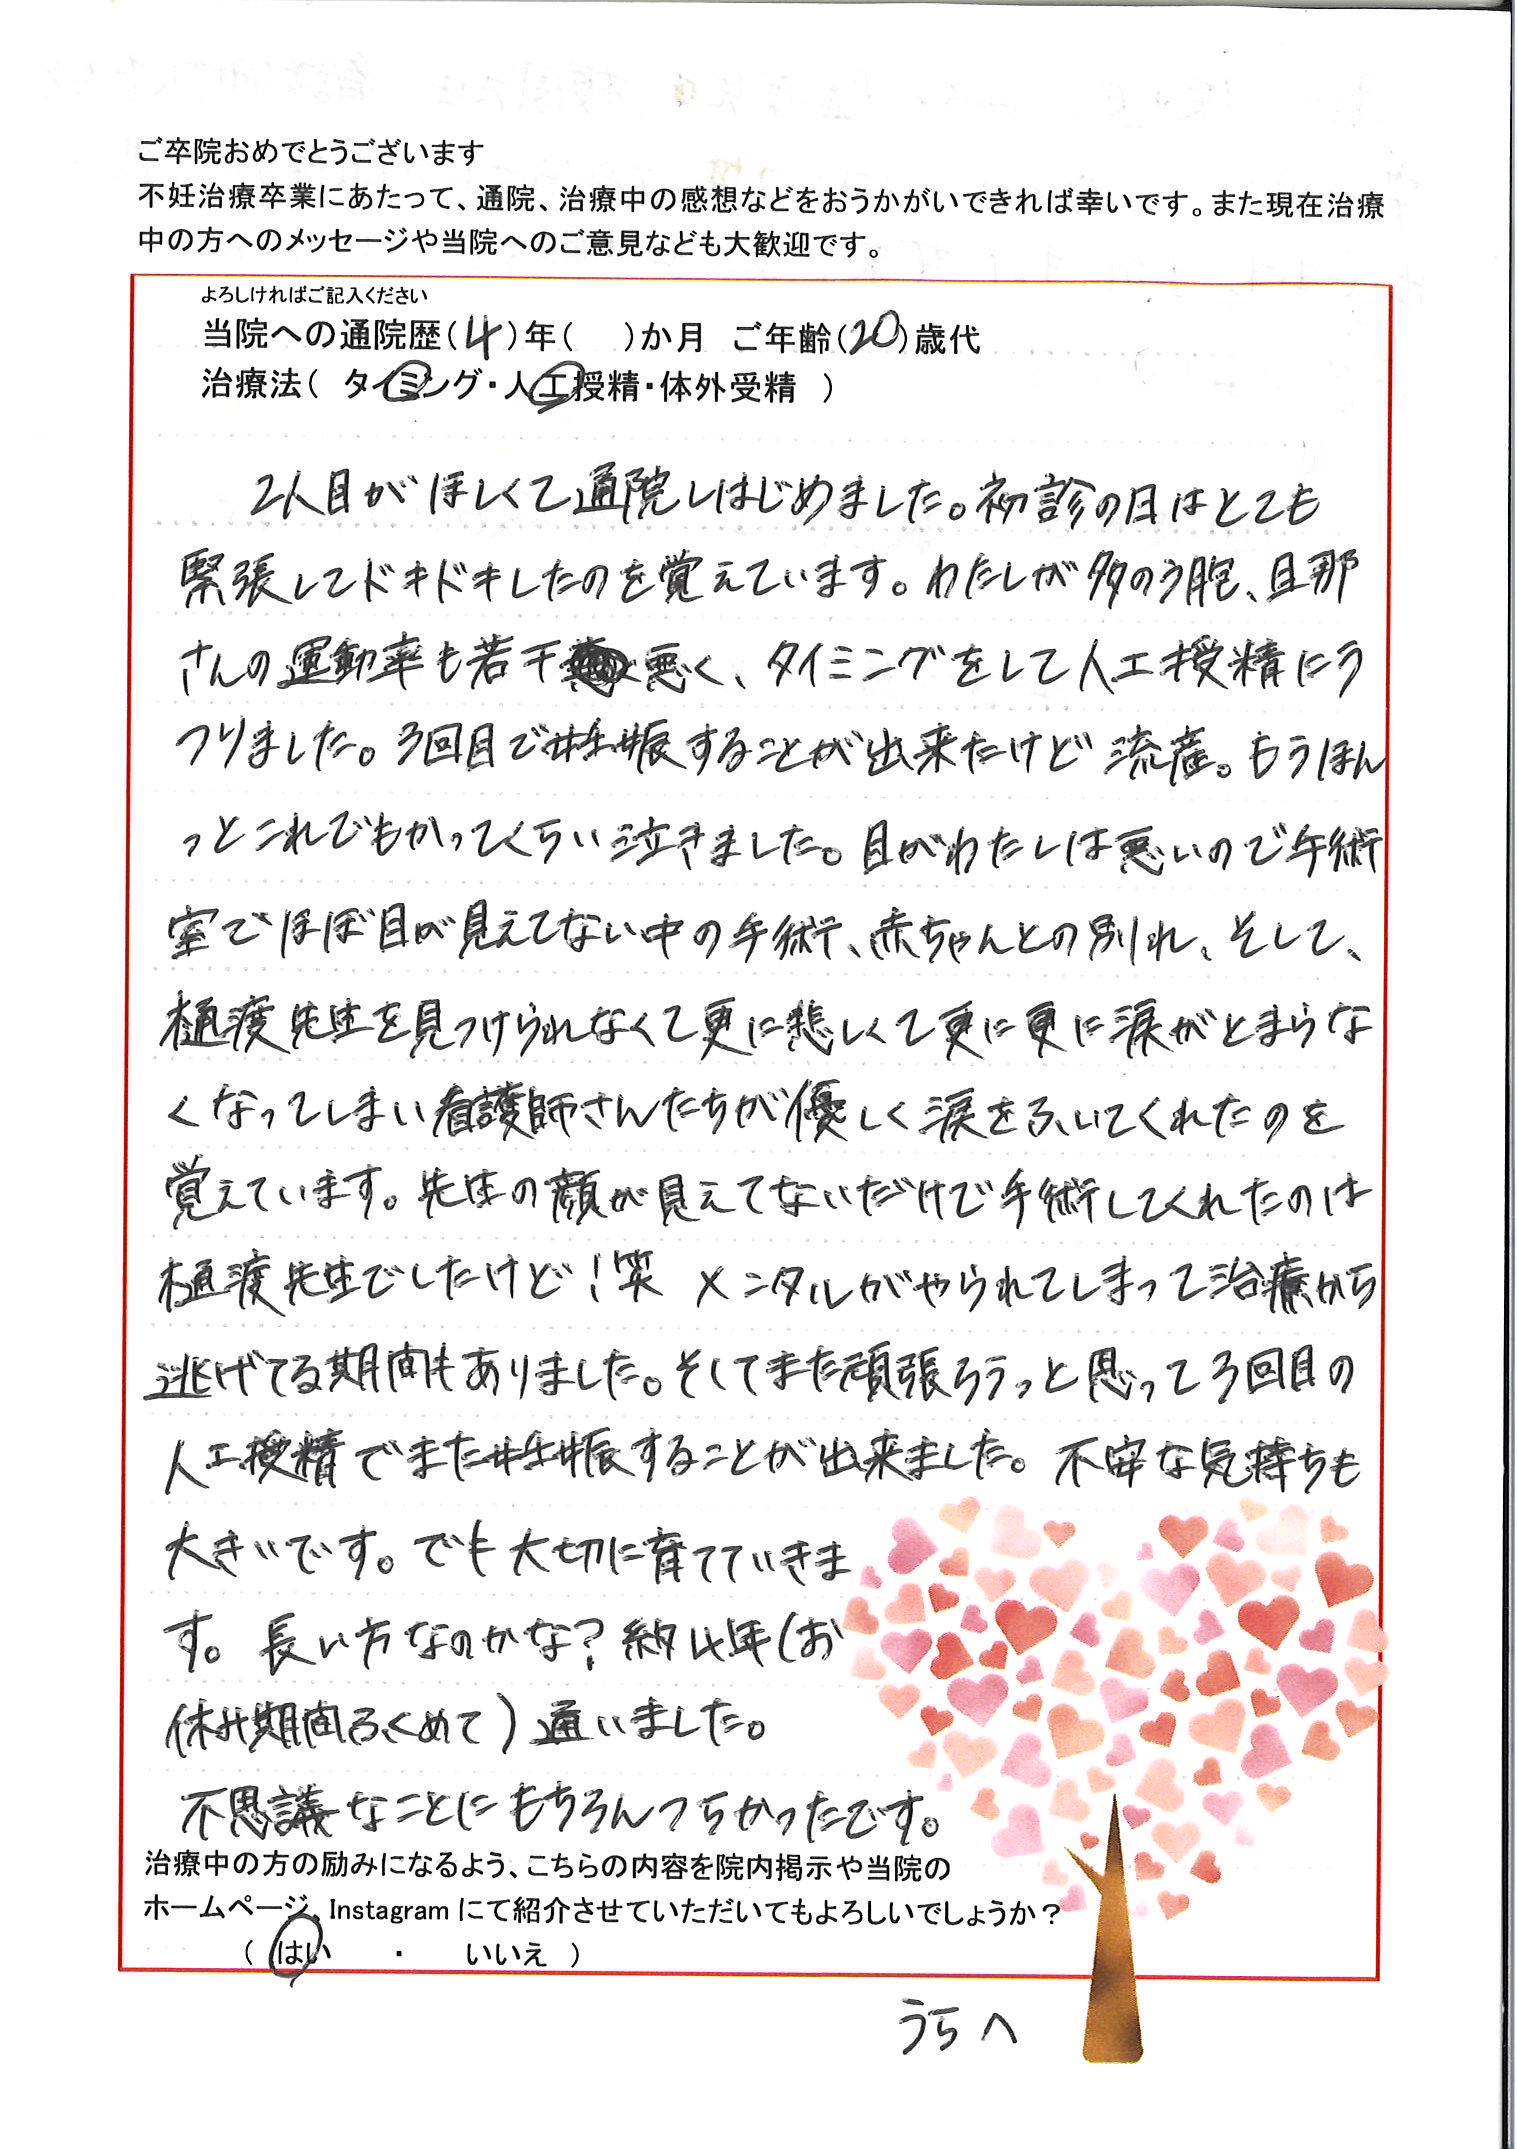 ご卒院おめでとうございます
不妊治療卒業にあたって、通院、治療中の感想などをおうかがいできれば幸いです。また現在治療
中の方へのメッセージや当院へのご意見なども大歓迎です。
よろしければご記入ください
当院への通院歴（4）年（　）か月　ご年齢（20）歳代
治療法（　タイミング・人工授精・体外受精　）
2人目がほしくて通院しはじめました。初診の日はとても
緊張してドキドキしたのを覚えています。わたしが多のう胞、旦那
さんの運動率も若干悪く、タイミングをして人工授精にう
つりました。3回目で妊娠することが出来たけど流産。もうほん
っとこれでもかってくらい泣きました。目がわたしは悪いので手術
室でほぼ目が見えてない中の手術、赤ちゃんとの別れ、そして、
樋渡先生を見つけられなくて更に悲しくて更に更に涙がとまらな
くなってしまい看護師さんたちが優しく涙をふいてくれたのを
覚えています。先生の顔が見えてないだけで手術してくれたのは
樋渡先生でしたけど！笑 メンタルがやられてしまって治療から
逃げてる期間もありました。そしてまた頑張ろうっと思って3回目の
人工授精でまた妊娠することが出来ました。不安な気持ちも
大きいです。でも大切に育てていきま
す。長い方なのかな？約4年（お
休み期間ふくめて）通いました。
不思議なことにもちろんつらかったです。
治療中の方の励みになるよう、こちらの内容を院内掲示や当院の
ホームページ、Instagram にて紹介させていただいてもよろしいでしょうか？
（　はい　・　いいえ　）
うらへ